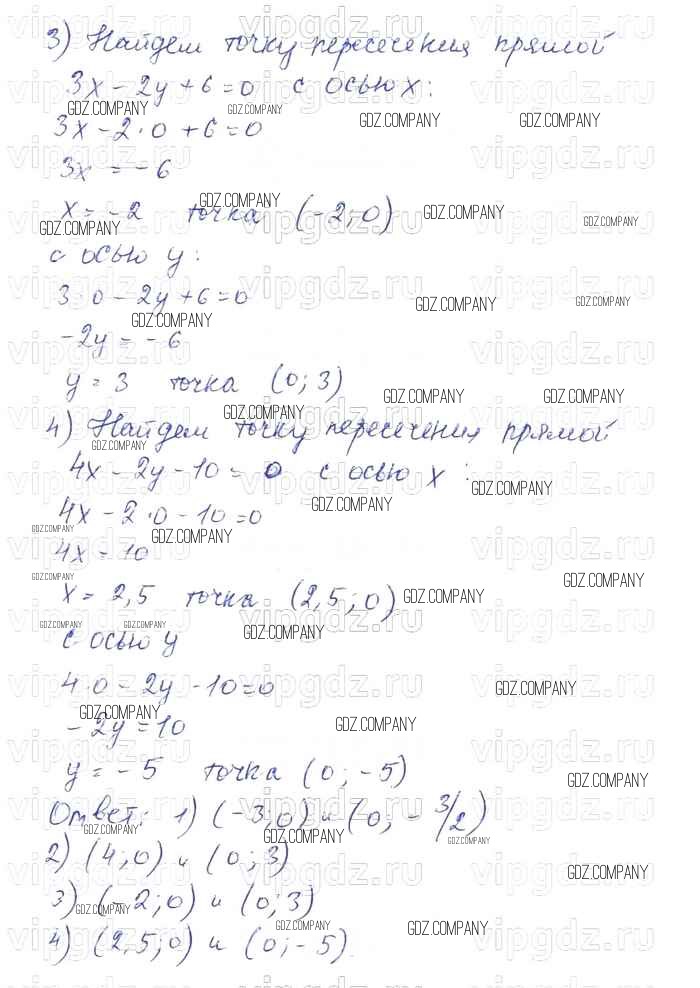 3) Найдем точку пересечения прямой
3x - 2y + 6 = 0 с осью x:
3x - 2·0 + 6 = 0
3x = -6
x = -2 точка (-2; 0)
с осью y:
3·0 - 2y + 6 = 0
-2y = -6
y = 3 точка (0; 3)
4) Найдем точку пересечения прямой
4x - 2y - 10 = 0 с осью x:
4x - 2·0 - 10 = 0
4x - 10
x = 2,5 точка (2,5; 0)
с осью y
4·0 - 2y - 10 = 0
-2y = 10
y = -5 точка (0; -5)
Ответ: 1) (-3; 0) и (0; - 3/2)
2) (4; 0) и (0; 3)
3) (-2; 0) и (0; 3)
4) (2,5; 0) и (0; -5)
vipgdz.ru
GDZ.COMPANY